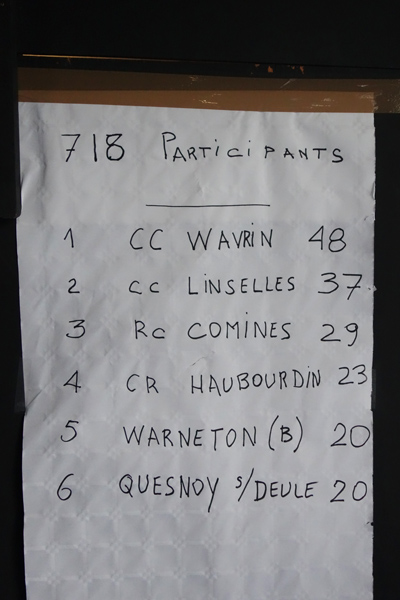 718 PARTiCiPANTS
1 CC WAVRIN 48
2 CC LiNSELLES 37
3 RC COMINES 29
4 CR HAUBOURDIN 23
5 WARNETON (B) 20
6 QUESNOY S/DEULE 20